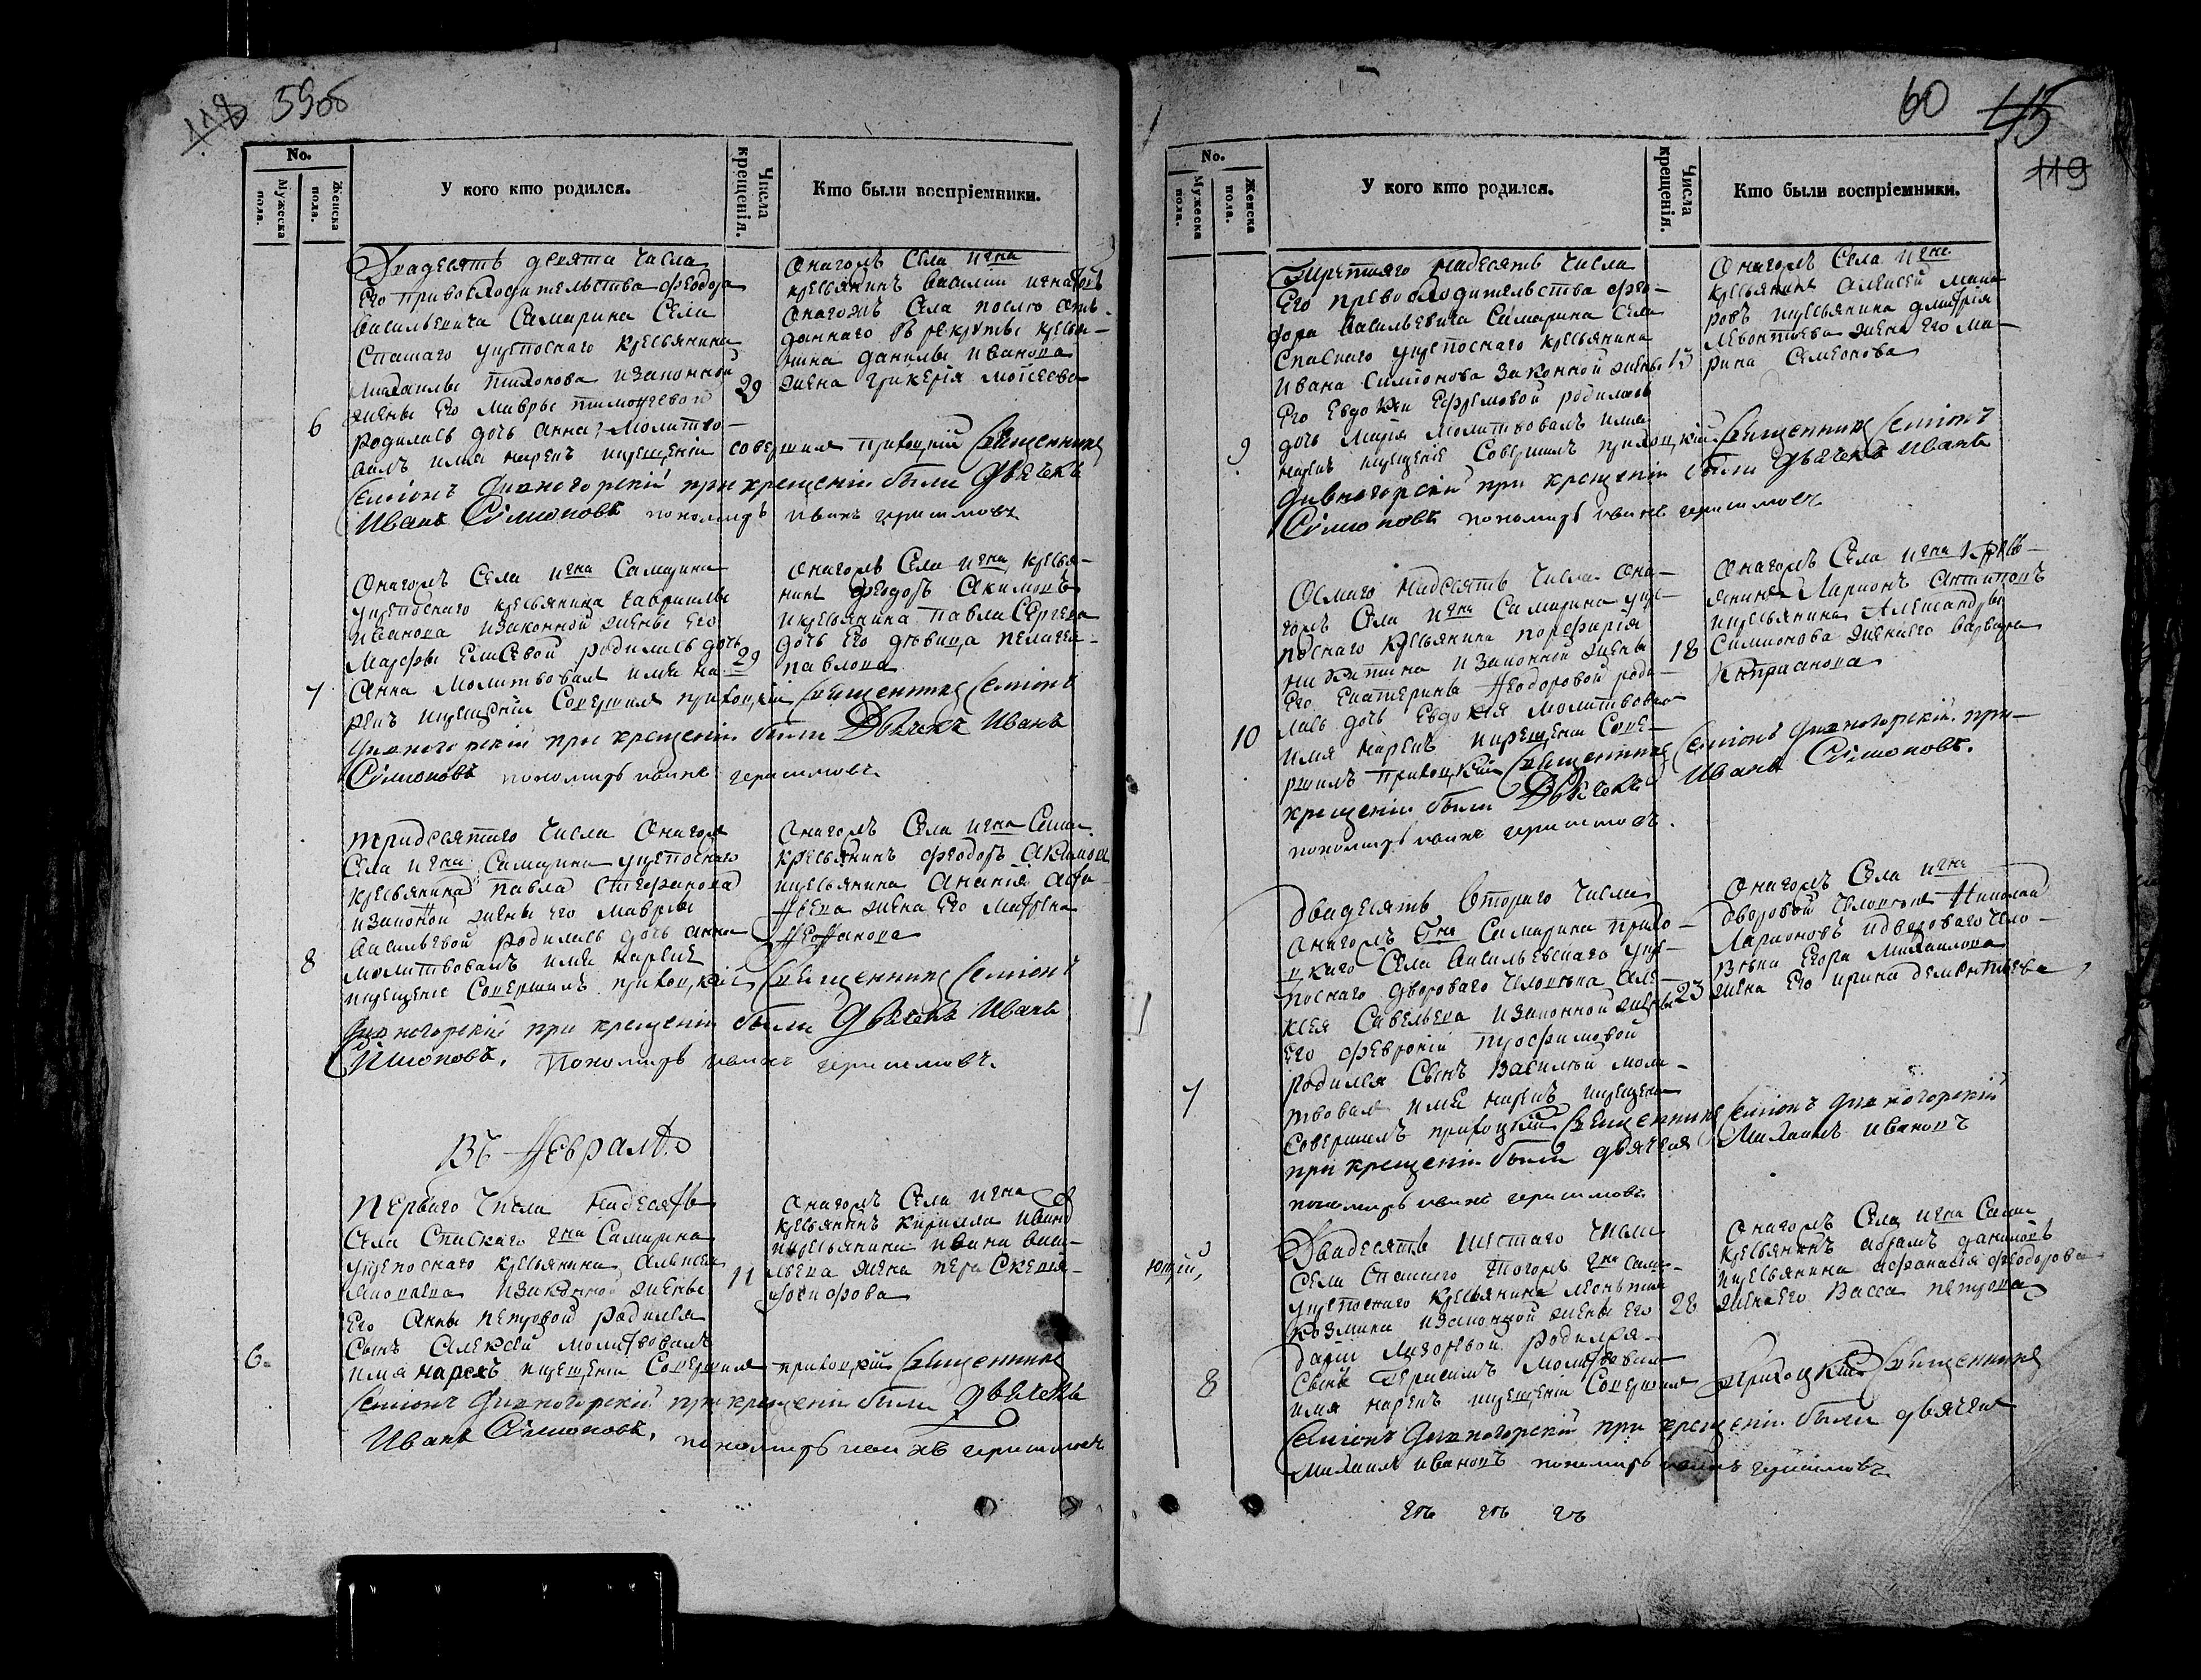 118 59об
No.
Мужеска пола.
Женска пола.
У кого кто родился.
Числа крещенія.
Кто были воспріемники.
Двадесять девята числа
Его превосходительства Феодора
Васильевича Самарина Села
Спаскаго крепоснаго крестьянина
Михаилы изаконной
жены Его Мавры Тимофеевой
6
родилась дочь Анна, молитво-
валъ имя нарекъ икрещеніе совершилъ приходскій Священникъ
Семіонъ Дивногорскій при крещеніи были Дьячекъ
Иванъ Симоновъ пономарь иванъ герасимовъ
29
Онагожъ Села игна
крестьянинъ василіи игнатовъ
онагожъ Села после отъ-
даннаго в рекруты кресть-
янина данилы Иванова
жена гликерія Моісеева
Онагожъ Села игна Самарина
крепоснаго крестьянина гаврилы
Иванова изаконной жены Его
Марфы Елисевой родилась дочь
7
Анна молитвовалъ имя на-
рекъ икрещеніе Совершилъ приходскій Священникъ Семіонъ
дивногорскій при крещеніи были Дьячекъ Иванъ
Симоновъ пономарь иванъ герасимовъ.
29
Онагожъ Села игна кресть-
нинъ Феодоръ Акимовъ
икрестьянина павла Сергева
дочь Его девица пелагея
павлова
Тридесятаго числа Онагожъ
Села игна Самарина крепоснаго
крестьянина павла Стефанова
изаконой жены его Мавры
Васильевой родилась дочь анна
8
молитвовалъ имя нарекъ
икрещеніе Совершилъ приходскій Священникъ Семіонъ
дивногорскій при крещеніи были Дьячекъ Иванъ
Симоновъ. Пономарь иванъ герасимовъ.
Онагожъ Села игна Сама
крестьянинъ Феодоръ Акимовъ
икрестьянина Ананія
жена Его Матрена
Въ Февралѣ
Первагo числа надесять
Села Спаскаго гна Самарина
крепоснаго крестьянина Алексея
изаконной жены
Его Анны петровой родился
Сынъ Алексей молитвовалъ
6.
имя нарекъ икрещеніе Совершилъ приходскій Священникъ
Семіонъ Дивногорскій при крещеніи были Дьячекъ
Иванъ Симоновъ, пономарь иванъ герасимовъ
11
Онагожъ Села игна
крестьянинъ кирилла Ивано
икрестьянина ивана васи-
льева жена
60 45
119
No.
Мужеска пола.
Женска пола.
У кого кто родился.
Числа крещенія.
Кто были воспріемники.
Третяго надесять числа
Его превосходительства Фео-
дора Васильевича Самарина Села
Спаскаго крепоснаго крестьянина
Ивана Симіонова законной жены
Его Евдокіи Ефремовой родилась
дочь Марія молитвовалъ имя
9
нарекъ икрещеніе Совершилъ приходскій Священникъ Семіонъ
Дивногорскій при крещеніи были Дьячекъ Иванъ
Симоновъ пономарь иванъ герасимовъ
Онагожъ Села игна
крестьянинъ Алексей Мака
ровъ икрестьянина дмитрія
Левонтьева жена Его Ма-
рина Семеонова
Осмаго надесять числа она-
гожъ Села игна Самарина кре-
поснаго крестьянина порфирія
никитина изаконной жены
Его Екатерины Феодоровой роди-
лась дочь Евдокія молитвовалъ
10
имя нарекъ икрещеніе Сове-
ршилъ приходскій Священникъ Семіонъ дивногорскій. при-
крещеніи были Дьячекъ Иванъ Симоновъ.
пономарь иванъ герасимовъ.
18
Онагожъ Села игна кресть-
янинъ Ларионъ Антиповъ
икрестьянина Александры
Симионова жена его варвара
Киприанова
Двадесять втораго числа
онагожъ гна Самарина прихо-
цкаго Села Васильевскаго кре-
поснаго двороваго человека Але-
ксея Савельева изаконной жены
Его Февроніи трофимовой
родился Сынъ Василий моли-
7
твовалъ имя нарекъ икрещеніе
Совершилъ приходскій Священникъ Семіонъ дивногорскій
при крещеніи были дьячекъ Михаилъ Ивановъ
пономарь иванъ герасимовъ
23
Онагожъ Села игна
дворовой человекъ Николай
Ларионовъ идвороваго чело-
века Егора Михаилова
жена Его ирина дементьева
Двадесять шестаго числа
Села Спаскаго Тогожъ гна Сама
крепоснаго крестьянина
Козмина изаконной жены Его
Дарии родился
Сынъ Герасимъ молитвовалъ
8
имя нарекъ икрещеніе Совершилъ приходскій Священникъ
Семіонъ Дивногорскій при крещеніи были дьячекъ
Михаилъ Ивановъ пономарь иванъ герасимовъ
ющій,
28
Онагожъ Села игна Сама
крестьянинъ абрамъ даниловъ
икрестьянина афанасія Феодорова
жена Его Васса петрова